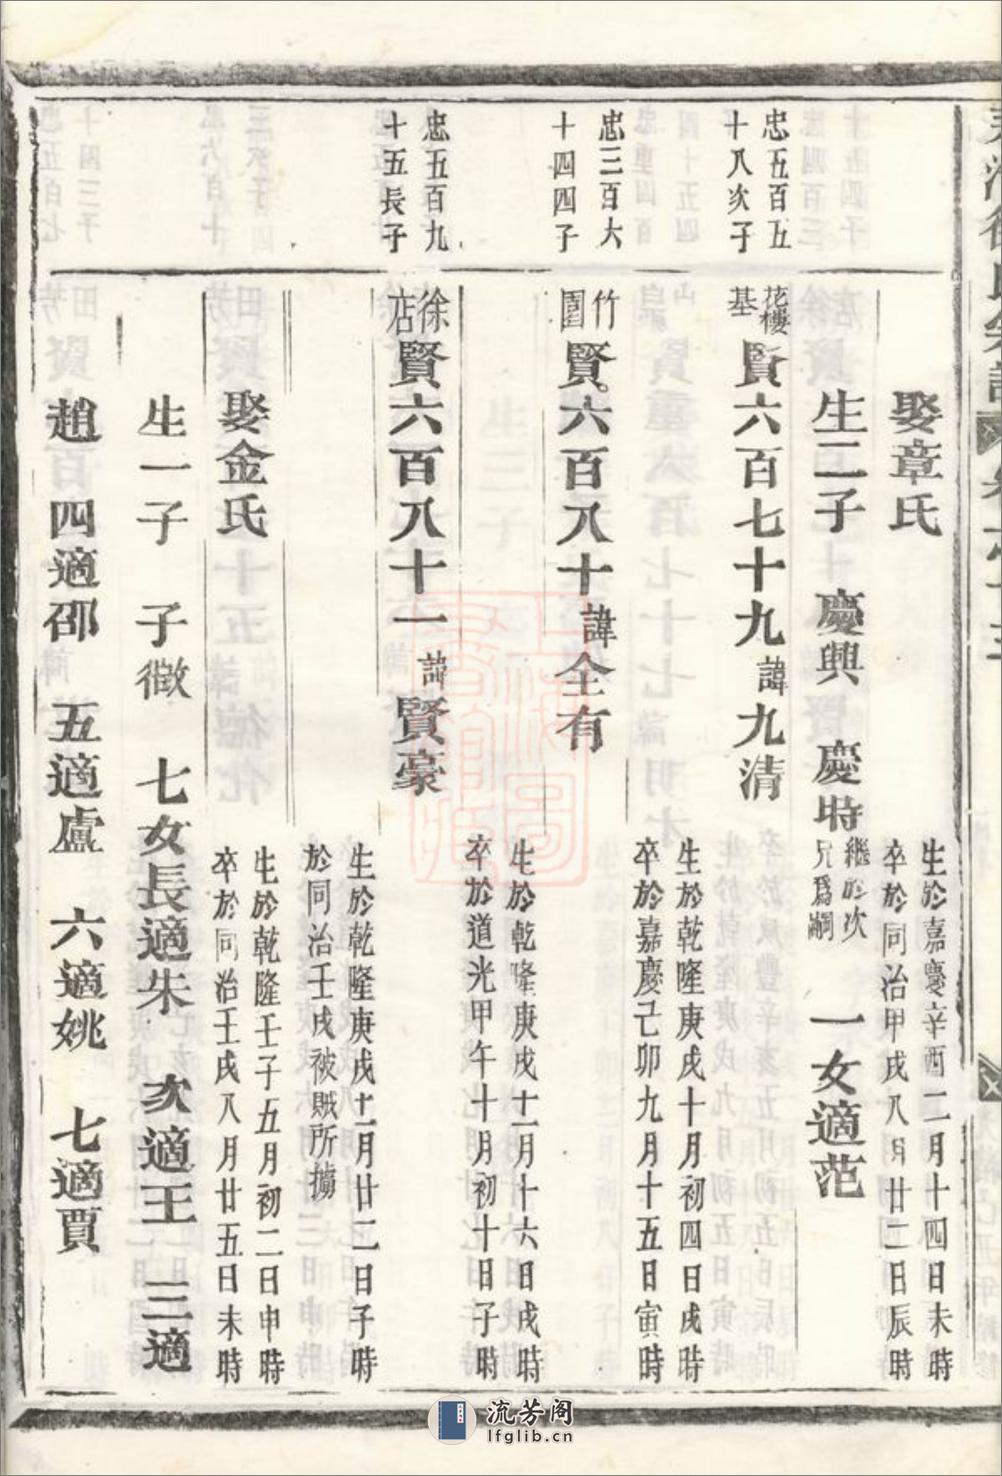 娶章氏
生於嘉慶辛酉二月十四日未時
卒於同治甲戌八月廿二日辰時
生二子 慶興 慶時
繼於次
兄爲嗣
一女適范
忠五百五
十八次子
花樓
基
賢六百七十九諱九清
生於乾隆庚戌十月初四日戌時
卒於嘉慶己卯九月十五日寅時
忠三百六
十四四子
竹
園
賢六百八十諱全有
生於乾隆庚戌十一月十六日戌時
卒於道光甲午十月初十日子時
忠五百九
十五長子
徐
店
賢六百八十一諱賢豪
生於乾隆庚戌十一月廿二日子時
於同治壬戌被賊所擄
娶金氏
生於乾隆壬子五月初二日申時
卒於同治壬戌八月廿五日未時
生一子 子徵 七女長適朱 次適王 三適
趙 四適邵 五適盧 六適姚 七適賈
流芳阁
lfglib.cn